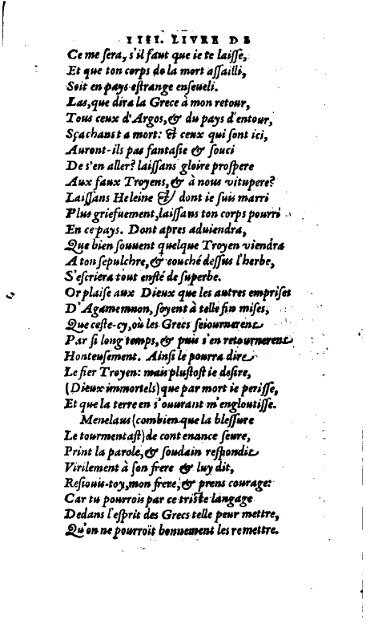 IIII. LIVRE DE
Ce me ſera, s'il faut que ie te laiſſe,
Et que ton corps de la mort aſſailli,
Soit en pays eſtrange enſeueli.
Las, que dira la Grece à mon retour,
Tous ceux d'Argos, & du pays d'entour,
Sçachans ta mort: & ceux qui ſont ici,
Auront-ils pas fantaſie & ſouci
De s'en aller? laiſſans gloire proſpere
Aux faux Troyens, & à nous vitupere?
Laiſſans Heleine & dont ie ſuis marri
Plus griefuement, laiſſans ton corps pourri
En ce pays. Dont apres aduiendra,
Que bien ſouuent quelque Troyen viendra
A ton ſepulchre, & couché deſſus l'herbe,
S'eſcriera tout enflé de ſuperbe.
Or plaiſe aux Dieux que les autres empriſes
D'Agamemnon, ſoyent à telle fin miſes,
Que ceſte-cy, où les Grecs ſeiournerent
Par ſi long temps, & puis s'en retournerent
Honteuſement. Ainſi le pourra dire
Le fier Troyen: mais pluſtoſt ie deſire,
(Dieux immortels) que par mort ie periſſe,
Et que la terre en s'ouurant m'engloutiſſe.
Menelaus (combien que la bleſſure
Le tourmentaſt) de contenance ſeure,
Print la parole, & ſoudain reſpondit
Virilement à ſon frere & luy dit,
Reſiouis-toy, mon frere, & prens courage:
Car tu pourrois par ce triſte langage
Dedans l'eſprit des Grecs telle peur mettre,
Qu'on ne pourroit bonnement les remettre.